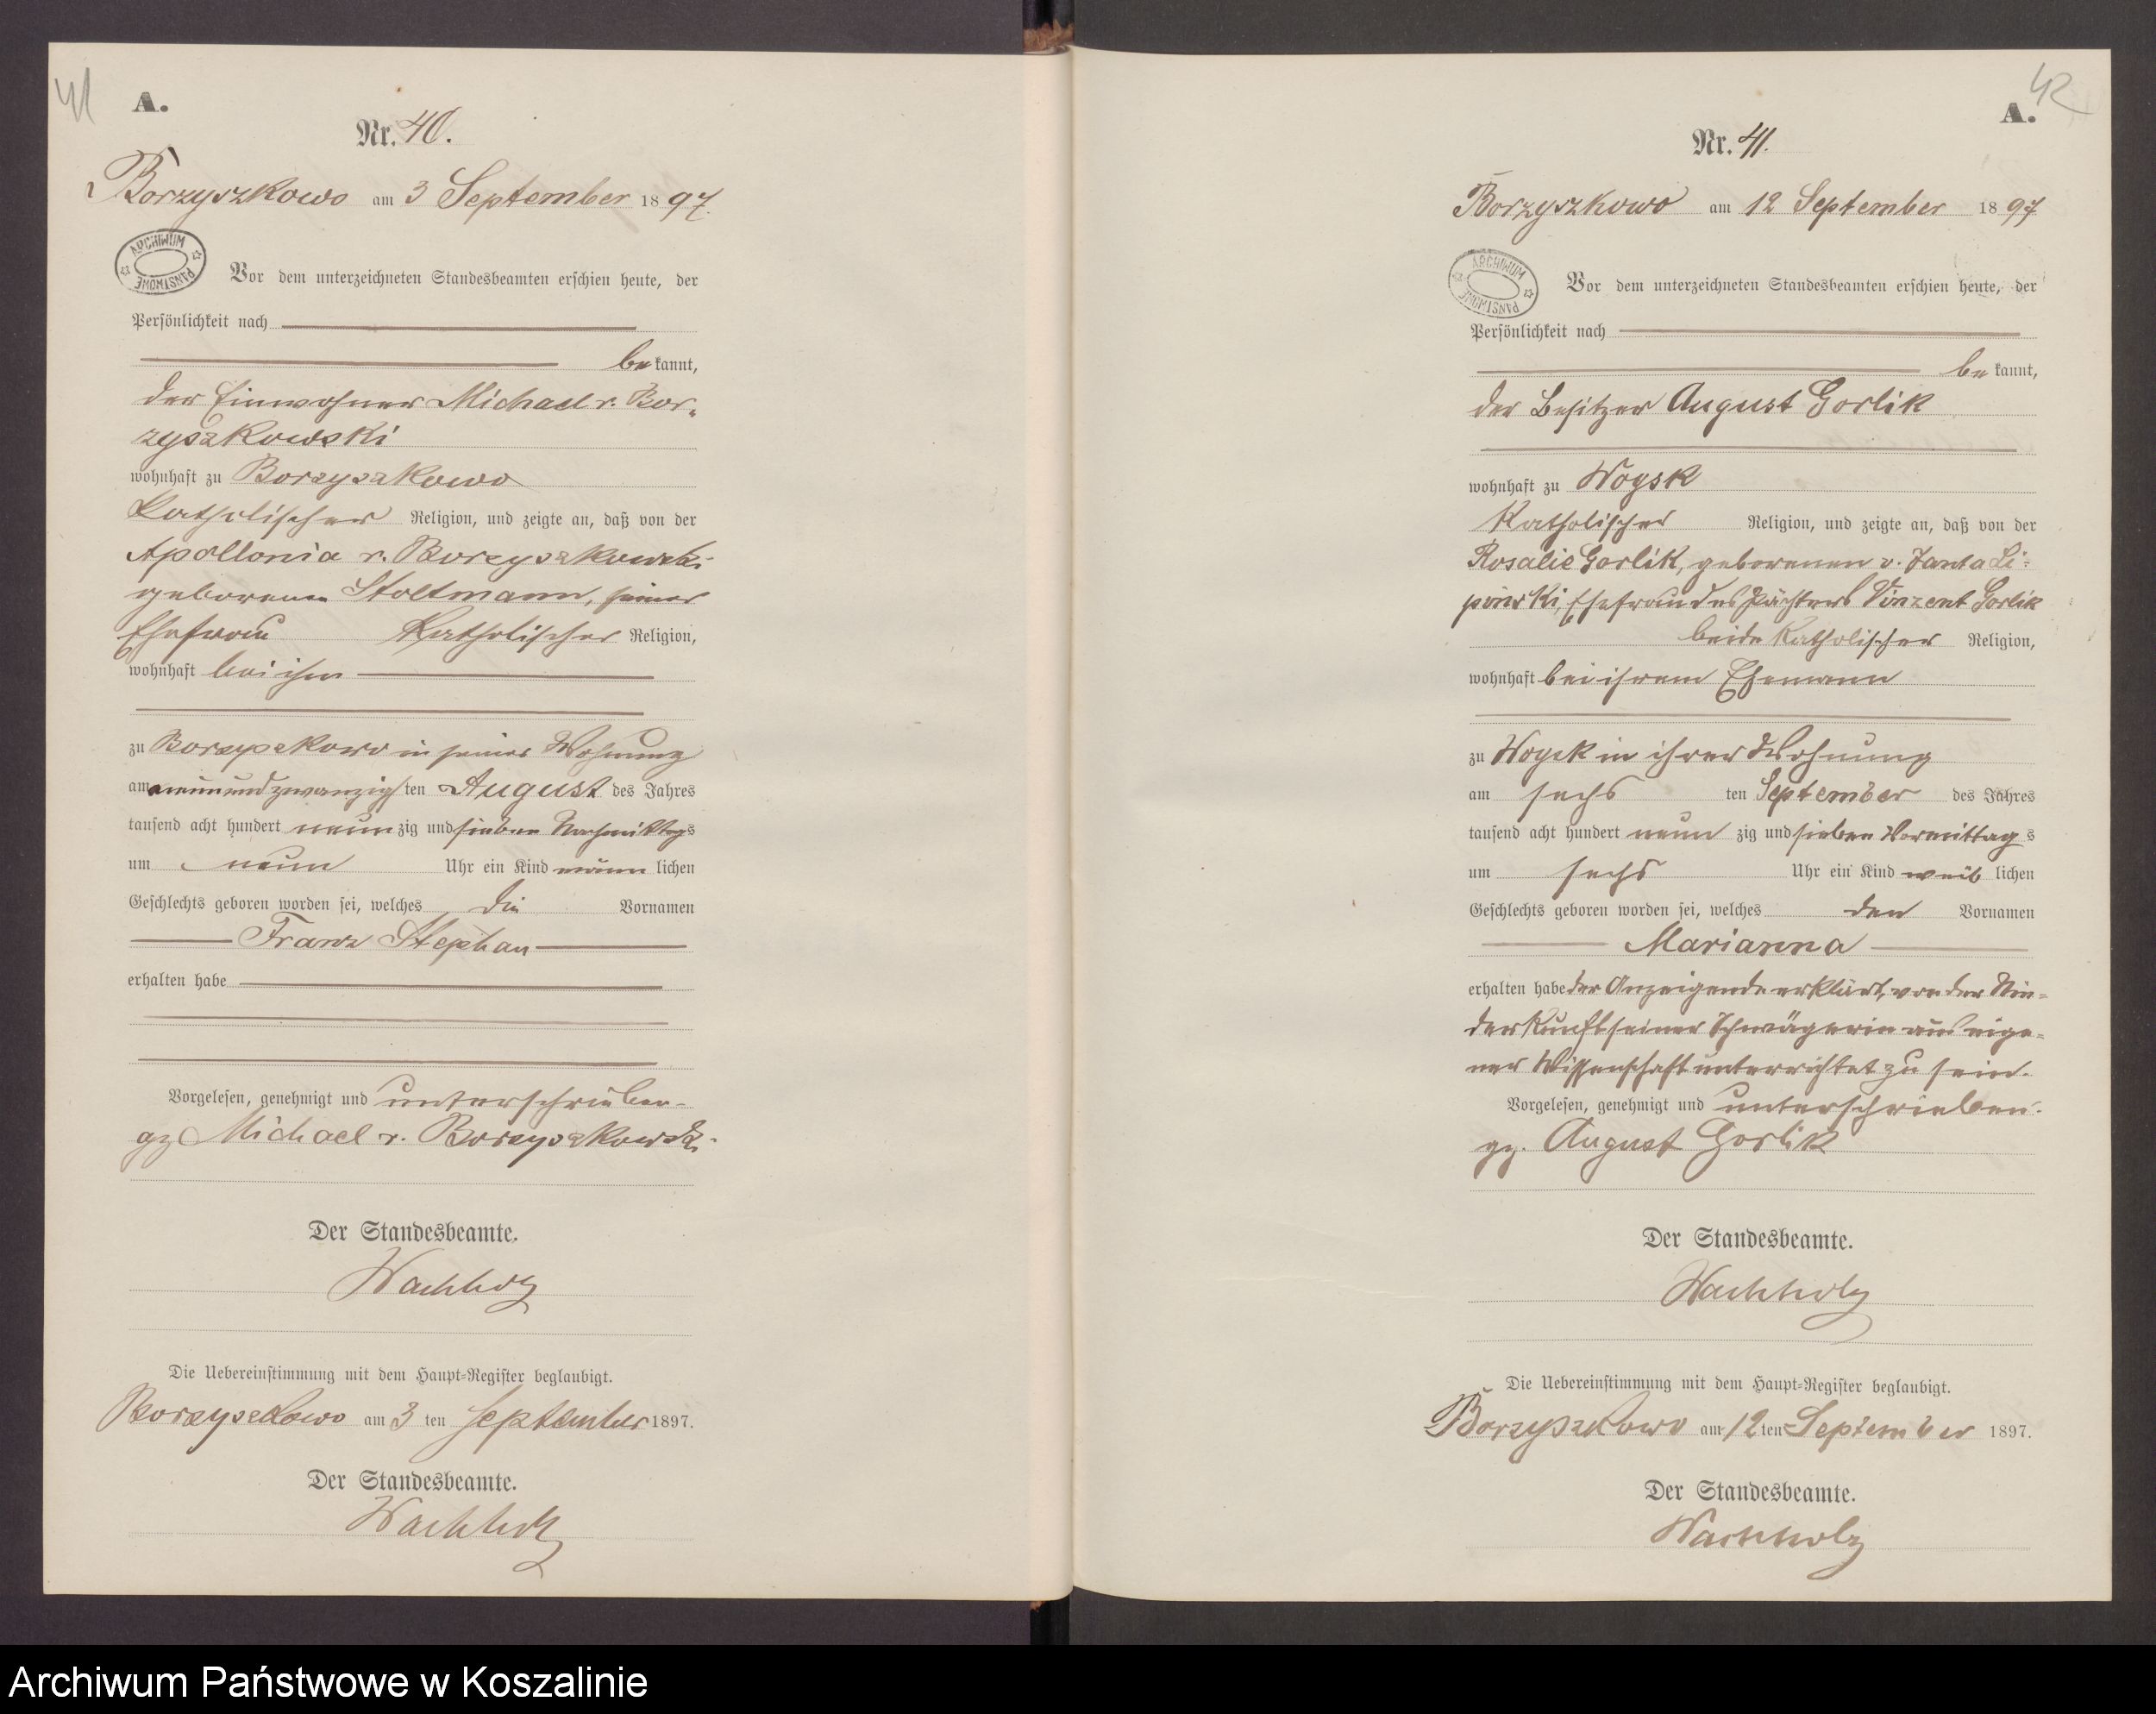 41
A.
Nr. 40.
Borzyszkowo am 3 September 1897.
ARCHIWUM PAŃSTWOWE
Vor dem unterzeichneten Standesbeamten erschien heute, der
Persönlichkeit nach
be kannt,
der Einwohner Michael v. Bor-
zyszkowski
wohnhaft zu Borzyszkowo
katholischer Religion, und zeigte an, daß von der
Apollonia v. Borzyszkowski
geborenen Stoltmann, seiner
Ehefrau katholischer Religion,
wohnhaft bei ihm
zu Borzyszkowo in seiner Wohnung
am neunundzwanzig ten August des Jahres
tausend acht hundert neun zig und sieben Nachmittags
um neun Uhr ein Kind männ lichen
Geschlechts geboren worden sei, welches die Vornamen
Franz Stephan
erhalten habe
Vorgelesen, genehmigt und unterschrieben
gz Michael v. Borzyszkowski
Der Standesbeamte.
Wachholz
Die Uebereinstimmung mit dem Haupt-Register beglaubigt.
Borzyszkowo am 3 ten September 1897.
Der Standesbeamte.
Wachholz
42
A.
Nr. 41.
Borzyszkowo am 12 September 1897
ARCHIWUM PAŃSTWOWE
Vor dem unterzeichneten Standesbeamten erschien heute, der
Persönlichkeit nach
be kannt,
der Besitzer August Gorlik
wohnhaft zu Woysk
katholischer Religion, und zeigte an, daß von der
Rosalie Gorlik, geborenen v. Janta Li-
pinski, Ehefrau des Pächters Vinzent Gorlik
beide katholischer Religion,
wohnhaft bei ihrem Ehemann
zu Woysk in ihrer Wohnung
am sechs ten September des Jahres
tausend acht hundert neun zig und sieben Vormittag s
um sechs Uhr ein Kind weib lichen
Geschlechts geboren worden sei, welches den Vornamen
Marianna
erhalten habe der Anzeigende erklärt, von der Nie-
derkunft seiner Schwägerin aus eige-
ner Wissenschaft unterrichtet zu sein.
Vorgelesen, genehmigt und unterschrieben.
gz. August Gorlik
Der Standesbeamte.
Wachholz
Die Uebereinstimmung mit dem Haupt-Register beglaubigt.
Borzyszkowo am 12 ten September 1897.
Der Standesbeamte.
Wachholz
Archiwum Państwowe w Koszalinie